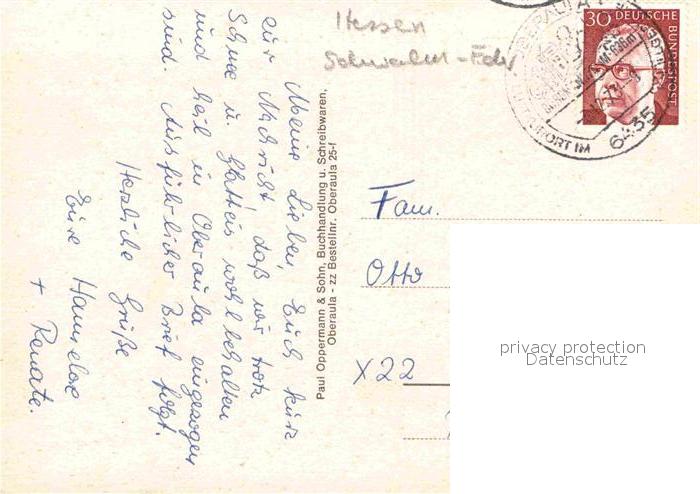 Hessen
Schwalm-Eder
Meine Lieben, Euch kurz
zur Nachricht, daß wir trotz
Schnee u. Glatteis wohlbehalten
und heil in Oberaula eingezogen
sind. Ausführlicher Brief folgt.
Herzliche Grüße
Eure Hannelore
+ Renate.
Paul Oppermann & Sohn, Buchhandlung u. Schreibwaren,
Oberaula - zz Bestellnr. Oberaula 25-f
30 DEUTSCHE
BUNDESPOST
OBERAULA
LUFTKURORT IM
6435
Fam.
Otto
X22
privacy protection
Datenschutz